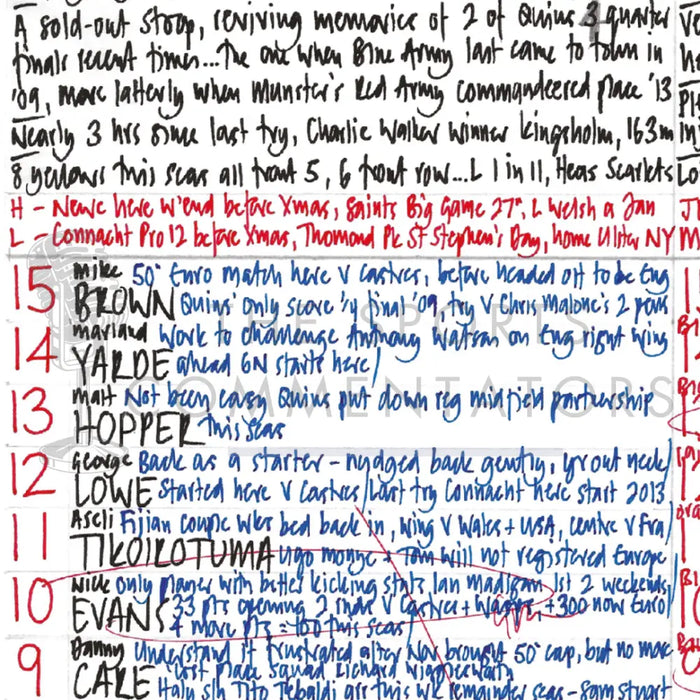 A sold-out Stoop, reviving memories of 2 of Quins 3 quarter
finals recent times...The one when Blue Army last came to town in
'09, more latterly when Munster's Red Army commandeered place '13
Nearly 3 hrs since last try, Charlie Walker winner Kingsholm, 163m
8 yellows this seas all front 5, 6 front row...L 1 in 11, Heas Scarlets
H - Newc here w'end before Xmas, Saints Big Game 27th, L Welsh 2 Jan
L - Connacht Pro 12 before Xmas, Thomond Pk St Stephen's Day, home Ulster NY
15 Mike 50th Euro match here V Castres, before headed off to be Eng
BROWN Quins' only score 1/4 final '09, try V Chris Malone's 2 pens
14 Marland Work to challenge Anthony Watson on Eng right wing
YARDE ahead 6N starts here
13 Matt Not been easy Quins put down reg midfield partnership
HOPPER this seas
12 George Back as a starter - nudged back gently, grout neck
LOWE Started here V Castres/Last try Connacht here start 2013
11 Aseli Fijian couple wks bed back in, wing V Wales + USA, centre V Fra
TIKOIROTUMA Ugo Monye + Tom Will not registered Europe
10 Nick Only player with better kicking stats Ian Madigan 1st 2 weekends
EVANS 33 pts opening 2 rnds V Castres + Wasps, +300 now Euro
4 more pts = 100 this seas
9 Danny Understand if frustrated after Nov brought 50th cap, but no more
CARE last place squad Richard Wigglesworth
Italy s/h Tito Tebaldi arr this wk remainder seas - Sam Stuart
THE SPORTS
COMMENTATORS